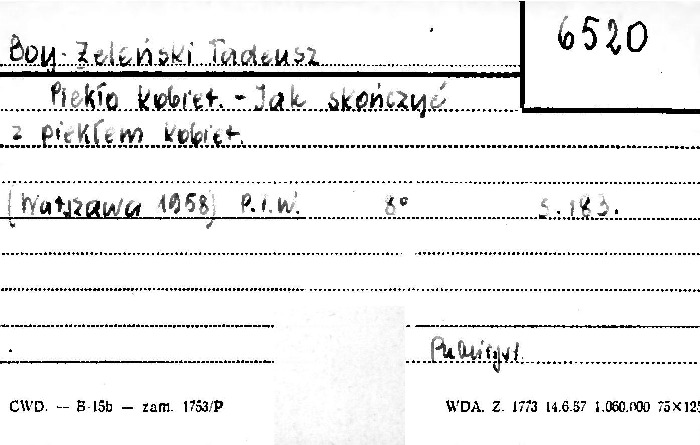 6520
Boy-Żeleński Tadeusz
Piekło kobiet. - Jak skończyć
z piekłem kobiet.
(Warszawa 1958) P.I.W. 8° s. 183.
Publicyst.
CWD. — B-15b — zam. 1753/P WDA. Z. 1773 14.6.57 1.060.000 75×125